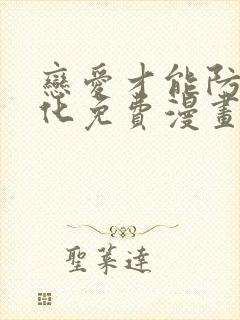 戀愛才能防
化免費漫畫
聖萊達